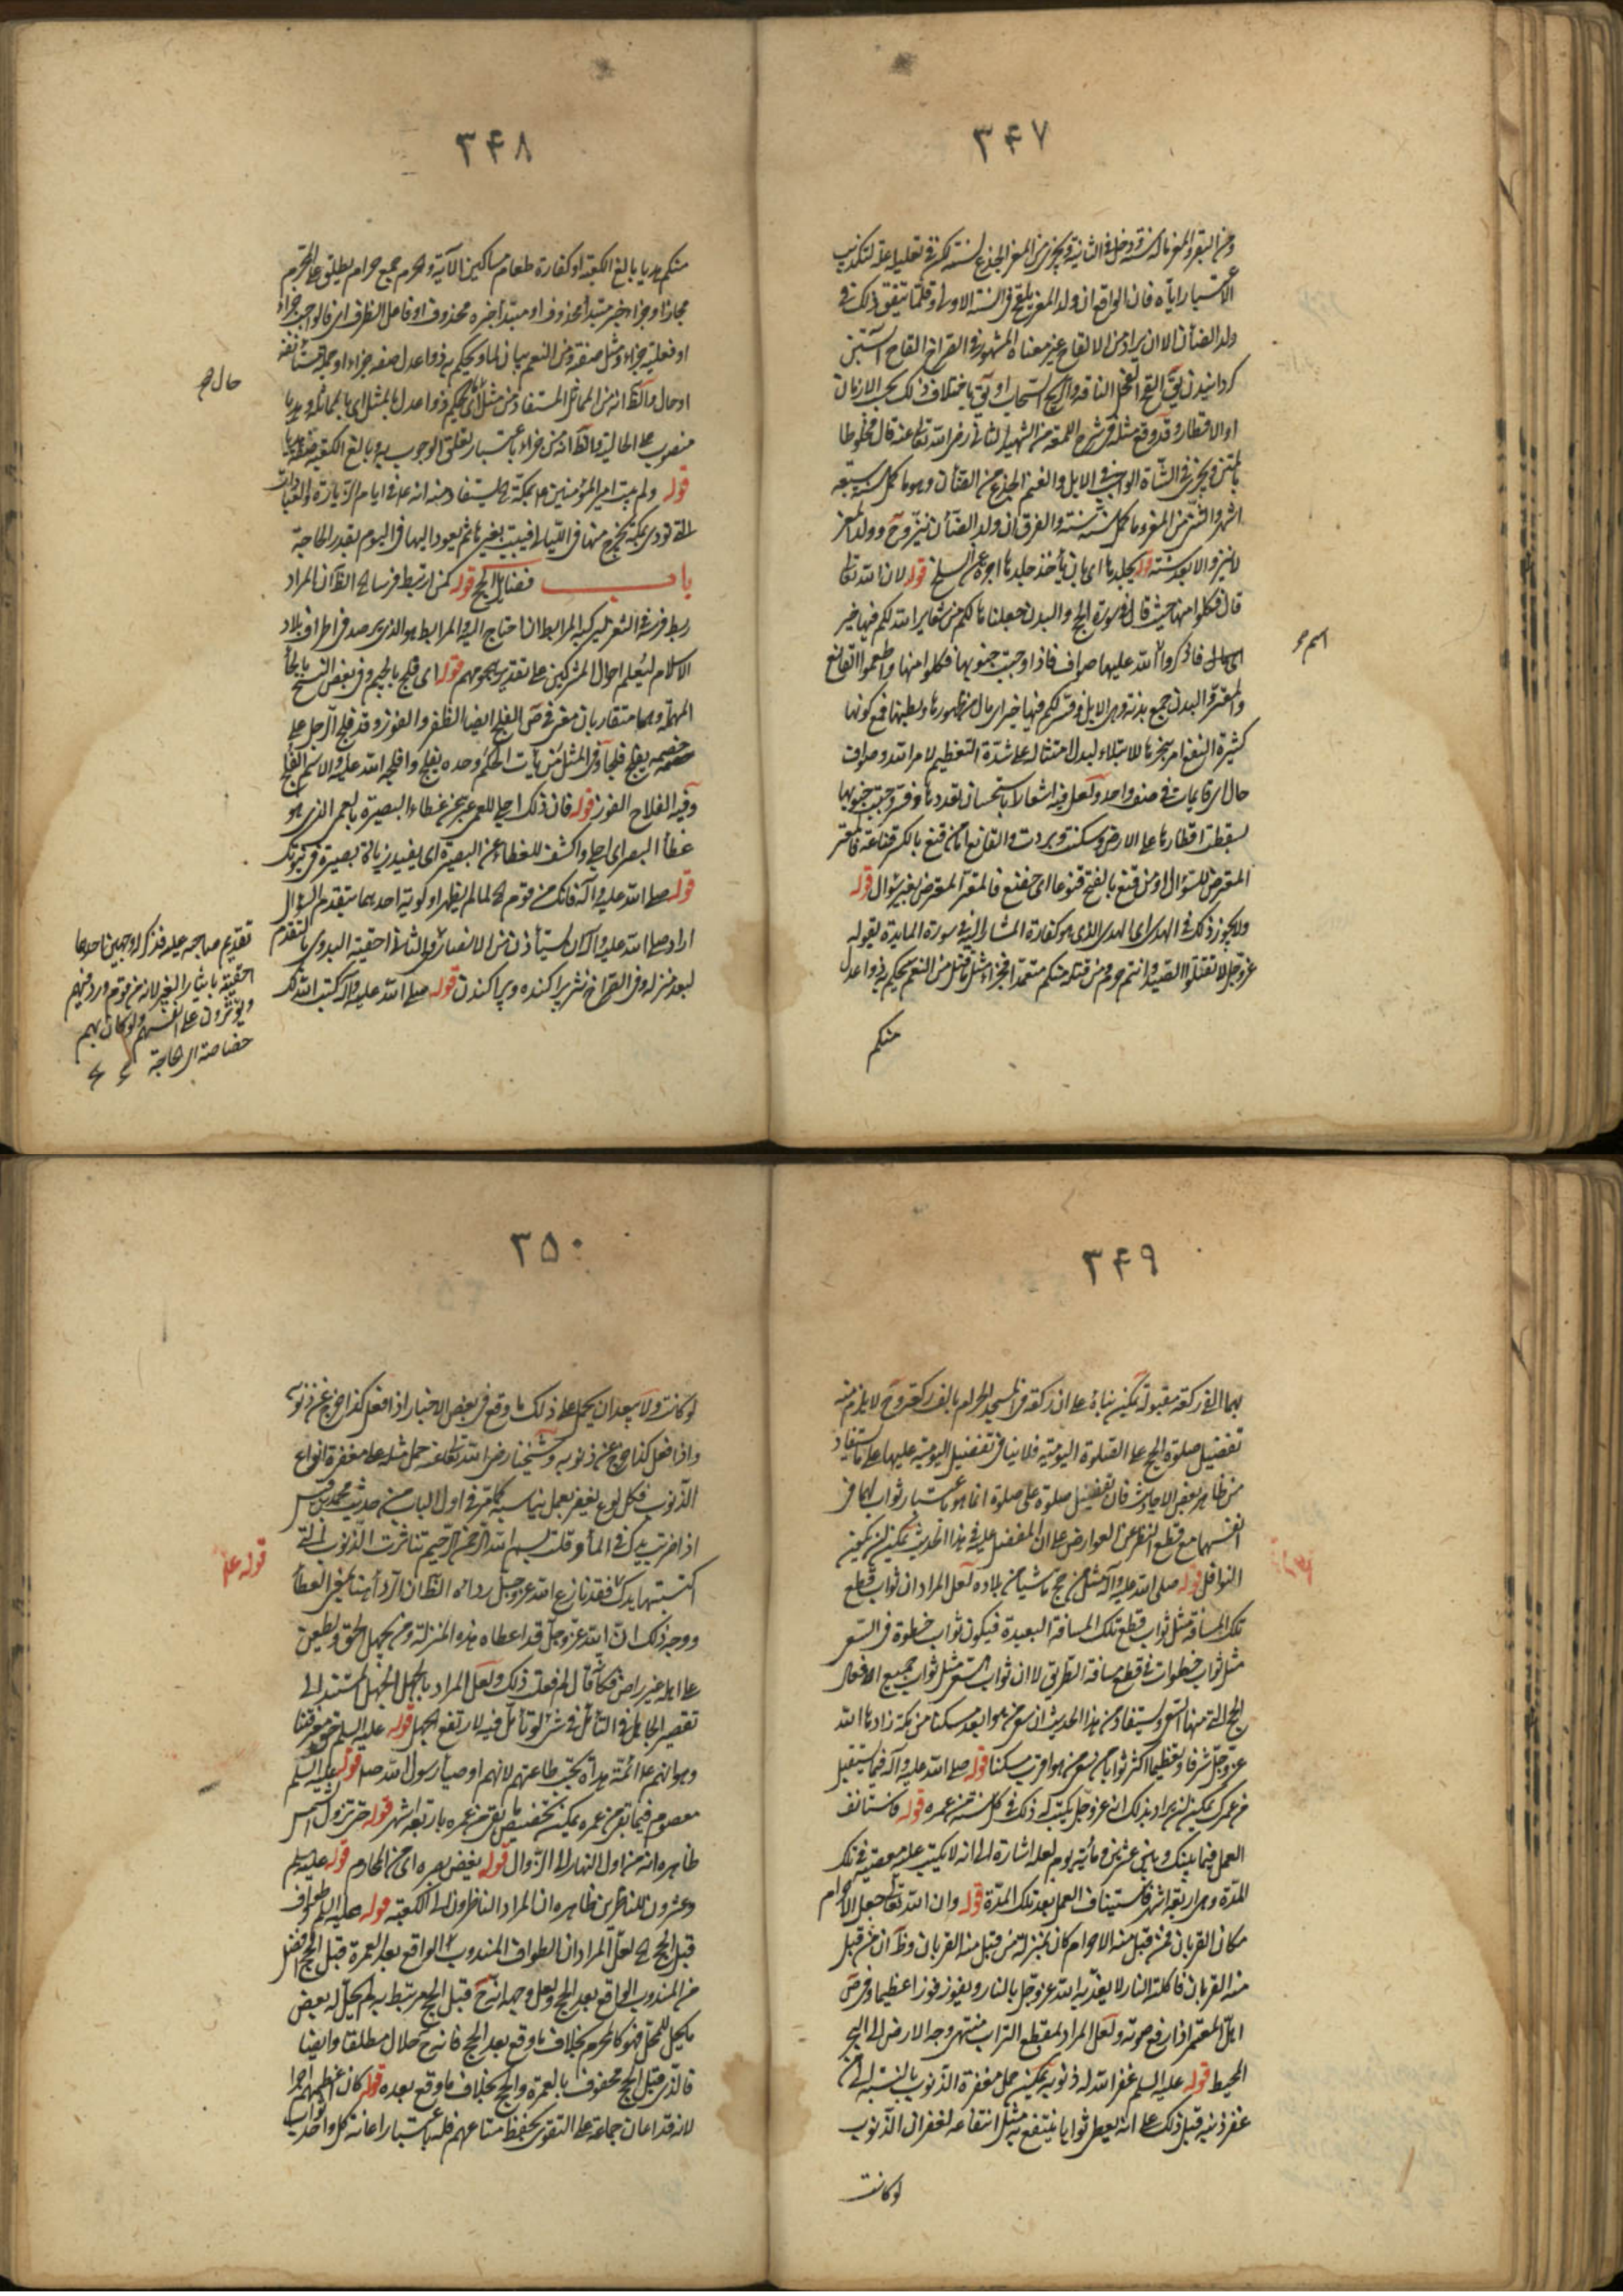 ۳۴۷
ومن البقر والمعز ماله سنة ودخل في الثانية ويجزي من المعز الجذع لسنة
الاعتبار اياه فان الواقع ان ولد المعز يلقح في السنة الاولى وقلما يتفق ذلك في
ولد الضأن الا ان يراد من الالقاح غير معناه المشهور في القراح القاح آبستن
كردانيدن يق القح الفحل الناقة والريح السحاب او يق باختلاف ذلك بحسب الازمان
او الاقطار وقد وقع مثله في شرح اللمعة من الشهيد الثاني رضي الله تعالى عنه قال مخلوطا
بالمتن ويجزي في الشاة الواجبة في الابل والغنم الجذع من الضأن وهو ما كمل سنه سبعة
اشهر والثني من المعز وما كمل سنه سنة والفرق ان ولد الضأن ينزو ح وولد المعز
لا ينزو الا بعد سنة قوله بجلدها اى بان يأخذ جلدها اجرة عن السلخ قوله لان الله تعالى
قال فكلوا منها حيث قال في سورة الحج والبدن جعلناها لكم من شعاير الله لكم فيها خير
فاذكروا الله عليها صواف فاذا وجبت جنوبها فكلوا منها واطعموا القانع
اسم
والمعتر والبدن جمع بدنة وهي الابل وفسر لكم فيها خير اى مال من ظهورها وبطنها فمع كونها
كثيرة النفع امر بنحرها للابتلاء ليدل امتثاله على شدة التعظيم لامر الله وصواف
حال اى قايمات في صف واحد ولعل فيه اشعارا باستحسان تعددها وفسر وجبت جنوبها
بسقطت اقطارها على الارض وسكنت وبردت والقانع اما من قنع بالكسر قناعة فالمعتر
المتعرض للسؤال او من قنع بالفتح قنوعا اى خضع فالمعتر المتعرض بغير سؤال قوله
ولا يجوز ذلك في الهدى اى الهدى الذى هو كفارة المشار اليه في سورة المايدة بقوله
عز وجل لا تقتلوا الصيد وانتم حرم ومن قتله منكم متعمدا فجزاء مثل ما قتل من النعم يحكم به ذوا عدل
منكم
۳۴۸
منكم هديا بالغ الكعبة او كفارة طعام مساكين الآية وحرم جمع حرام يطلق على المحرم
مجازا وجزاء خبر مبتدأ محذوف او مبتدأ خبره محذوف او فاعل الظرف اى فالواجب جزاء
او فعليه جزاء ومثل صفته ومن النعم بيان لما ويحكم به ذوا عدل صفة جزاء او جملة مستأنفة
او حال والظ انه من المماثل المستفاد من مثل اى يحكم ذوا عدل بالمثل اى بالمماثلة وهديا
حال
منصوب على الحالية والظ انه من جزاء باعتبار تعلق الوجوب به وبالغ الكعبة صفة هديا
قوله ولم يبت امير المؤمنين ع بمكة يستفاد منه انه ع في ايام الزيارة والعبادات
التي تودى بمكة يخرج منها في الليالي فيبيت بغيرها ثم يعود اليها في اليوم بقدر الحاجة
باب فضايل الحج قوله كمن ارتبط فرسا الظ ان المراد
ربط فرسه في الثغر ليركبه المرابط ان احتاج اليه والمرابط هو الذى يرصد في اطراف بلاد
الاسلام ليعلم احوال المشركين على تقدير هجومهم قوله اى فلج بالجيم وفي بعض النسخ بالحاء
المهملة وهما متقاربان معنى في ص الفلج ايضا الظفر والفوز وقد فلج الرجل على
خصمه يفلج فلجا وفي المثل من يأت الحكم وحده يفلج وافلجه الله عليه والاسم الفلج
وفيه الفلاح الفوز قوله فان ذلك اجلى للعمى عبر عن غطاء البصيرة بالعمى الذى هو
غطاء البصر اى اجلى واكشف للغطاء عن البصيرة اى يفيد زيادة بصيرة
قوله صلى الله عليه وآله فانك من قوم لما لم يظهر اولوية احدهما بتقدم السؤال
اراد صلى الله عليه وآله ان يستأذن من الانصارى والثاني احقية البدوى بالتقدم
لبعد منزله وفي القراح نثر پراكنده وپراكندن قوله صلى الله عليه وآله كتب الله لك
تقديم صاحبه عليه فذكر له وجهين احدهما
احقيته بايثار الغير لانه من قوم ورد فيهم
ويؤثرون على انفسهم ولو كان بهم
خصاصة اى حاجة
۳۴۹
بهما الفي ركعة مقبولة يمكن بناؤه على ان ركعة في المسجد الحرام بالف ركعة وح لا يلزم منه
تفضيل صلوة الحج على الصلوة اليومية فلا ينافي تفضيل اليومية عليها على ما يستفاد
من ظاهر بعض الاحاديث فان تفضيل صلوة على صلوة انما هو باعتبار ثوابهما في
انفسهما مع قطع النظر عن العوارض على ان المفضل عليه في هذا الحديث يمكن ان يكون
النوافل قوله صلى الله عليه وآله مثل من حج ماشيا من بلاده لعل المراد ان ثواب قطع
تلك المسافة مثل ثواب قطع تلك المسافة البعيدة فيكون ثواب خطوة في السعي
مثل ثواب خطوات في قطع مسافة الطريق لا ان ثواب السعي مثل ثواب جميع الافعال
الحج التي منها السعي ويستفاد من هذا الحديث ان سعى من هو ابعد مسكنا من مكة زادها الله
عز وجل شرفا وتعظيما اكثر ثوابا من سعى من هو اقرب مسكنا قوله صلى الله عليه وآله فيما يستقبل
من عمرك يمكن ان يراد بذلك ان عز وجل يكتب له ذلك في كل سنة من عمره قوله فاستانف
العمل فيما بينك وبين عشرين ومأية يوم لعله اشارة الى انه لا يكتب عليه معصية في تلك
المدة وهى اربعة اشهر فاستيناف العمل بعد تلك المدة قوله وان الله تعالى جعل الاحرام
مكان القربان فمن قبل منه الاحرام كان بمنزلة من قبل منه القربان وظ ان من قبل
منه القربان فاكلته النار لا يعذبه الله عز وجل بالنار ويفوز فوزا عظيما وفي ص
اهل المعتمر اذا رفع صوته ولعل المراد بمقطع التراب منتهى وجه الارض الى البحر
المحيط قوله عليه السلم غفر الله له ذنوبه يمكن حمل مغفرة الذنوب بالنسبة الى من
غفر ذنبه قبل ذلك على انه يعطى ثوابا ينتفع به مثل انتفاعه لغفران الذنوب
لو كانت
۳۵۰
لو كانت ولا يبعد ان يحمل على ذلك ما وقع في بعض الاخبار اذا فعل كذا خرج من ذنوبه
واذا فعل كذا خرج من ذنوبه وشيخنا رضي الله تعالى عنه حمل مثله على مغفرة انواع
الذنوب فكل نوع يغفر بعمل يناسبه كما مر في اول الباب من حديث محمد بن قيس
اذا ضربت يدك في الماء وقلت بسم الله الرحمن الرحيم تناثرت الذنوب التي
اكتسبتها يداك فقد نازع الله عز وجل رداءه الظ ان الرداء هنا بمعنى العطاء
قوله ع
ووجه ذلك ان الله عز وجل قد اعطاه هذه المنزلة ومن يجهل الحق ويطعن
على اهله غير راض فكأنه قال لم فعلت ذلك ولعل المراد بالجهل الجهل المستند الى
تقصير الجاهل في التأمل في شئ لو تأمل فيه لارتفع الجهل قوله عليه السلم حق معرفتنا
وهو انهم ع ائمة هداة يجب طاعتهم لانهم اوصياء رسول الله ص قوله عليه السلم
معصوم فيما بقي من عمره يمكن تخصيص بقي من عمره باربعة اشهر قوله حتى تزول الشمس
ظاهره انه من اول النهار الى الزوال قوله يغض بصره اى من المحارم قوله عليه السلم
وعشرون للناظرين ظاهره ان المراد الناظرون الى الكعبة قوله عليه السلم طواف
قبل الحج لعل المراد ان الطواف المندوب الواقع بعد العمرة قبل الحج افضل
من المندوب الواقع بعد الحج ولعل وجهه انه ح قبل الحج مرتبط به لم يحل له بعض
ما يحل للمحل فهو كالمحرم بخلاف ما وقع بعد الحج فانه ح حلال مطلقا وايضا
فالذى قبل الحج محفوف بالعمرة والحج بخلاف ما وقع بعده قوله كان اعظمهم اجرا
لانه قد اعان جماعة على التقوى بحفظ متاعهم فله باعتبار اعانة كل واحد ثواب